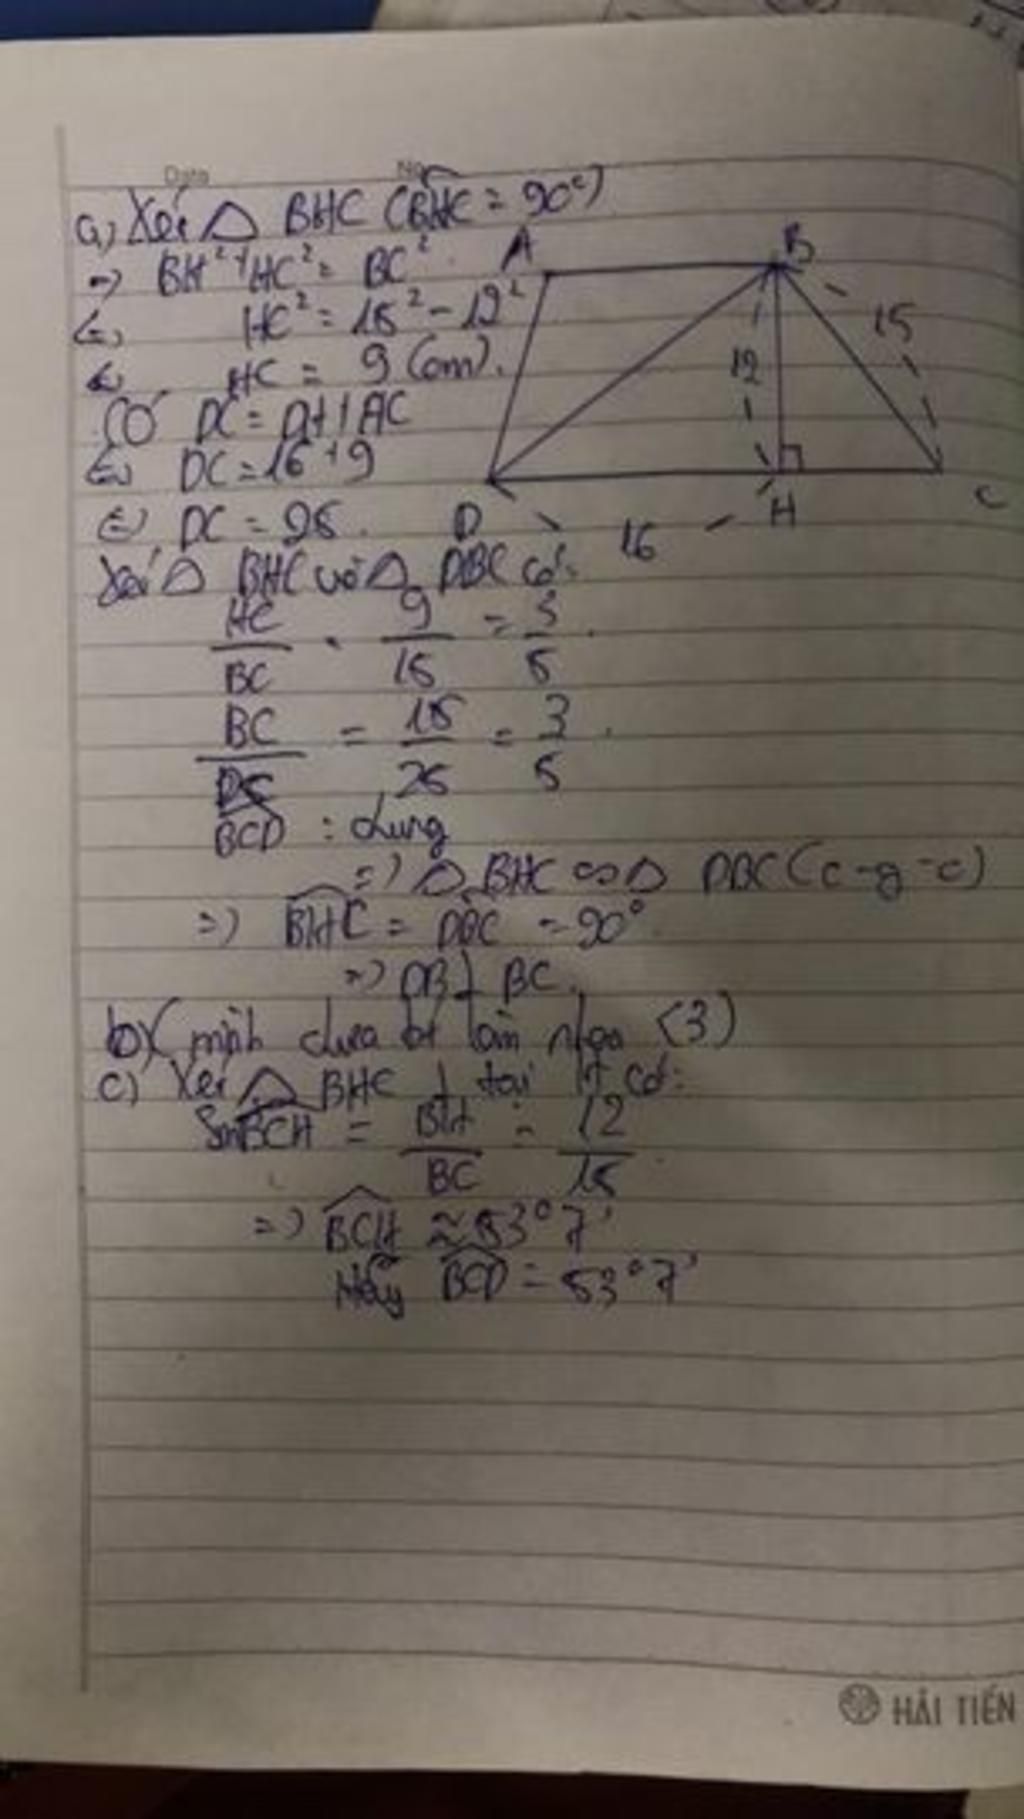 Date No
a) Xét △ BHC (BHC = 90°)
=> BH² + HC² = BC²
<=> HC² = 15² - 12²
<=> HC = 9 (cm).
Có DC = DH + HC
<=> DC = 16 + 9
<=> DC = 25.
A B
15
12
D H C
16
Xét △ BHC và △ DBC có:
HC/BC = 9/15 = 3/5.
BC/DC = 15/25 = 3/5.
BCD : chung
=> △ BHC ∽ △ DBC (c-g-c)
=> BHC = DBC = 90°
=> DB ⊥ BC.
b) (mình chưa bt làm nhoa <3)
c) Xét △ BHC ⊥ tại H có:
Sin BCH = BH/BC = 12/15.
=> BCH ≈ 53°7'
BCD = 53°7'
HẢI TIẾN